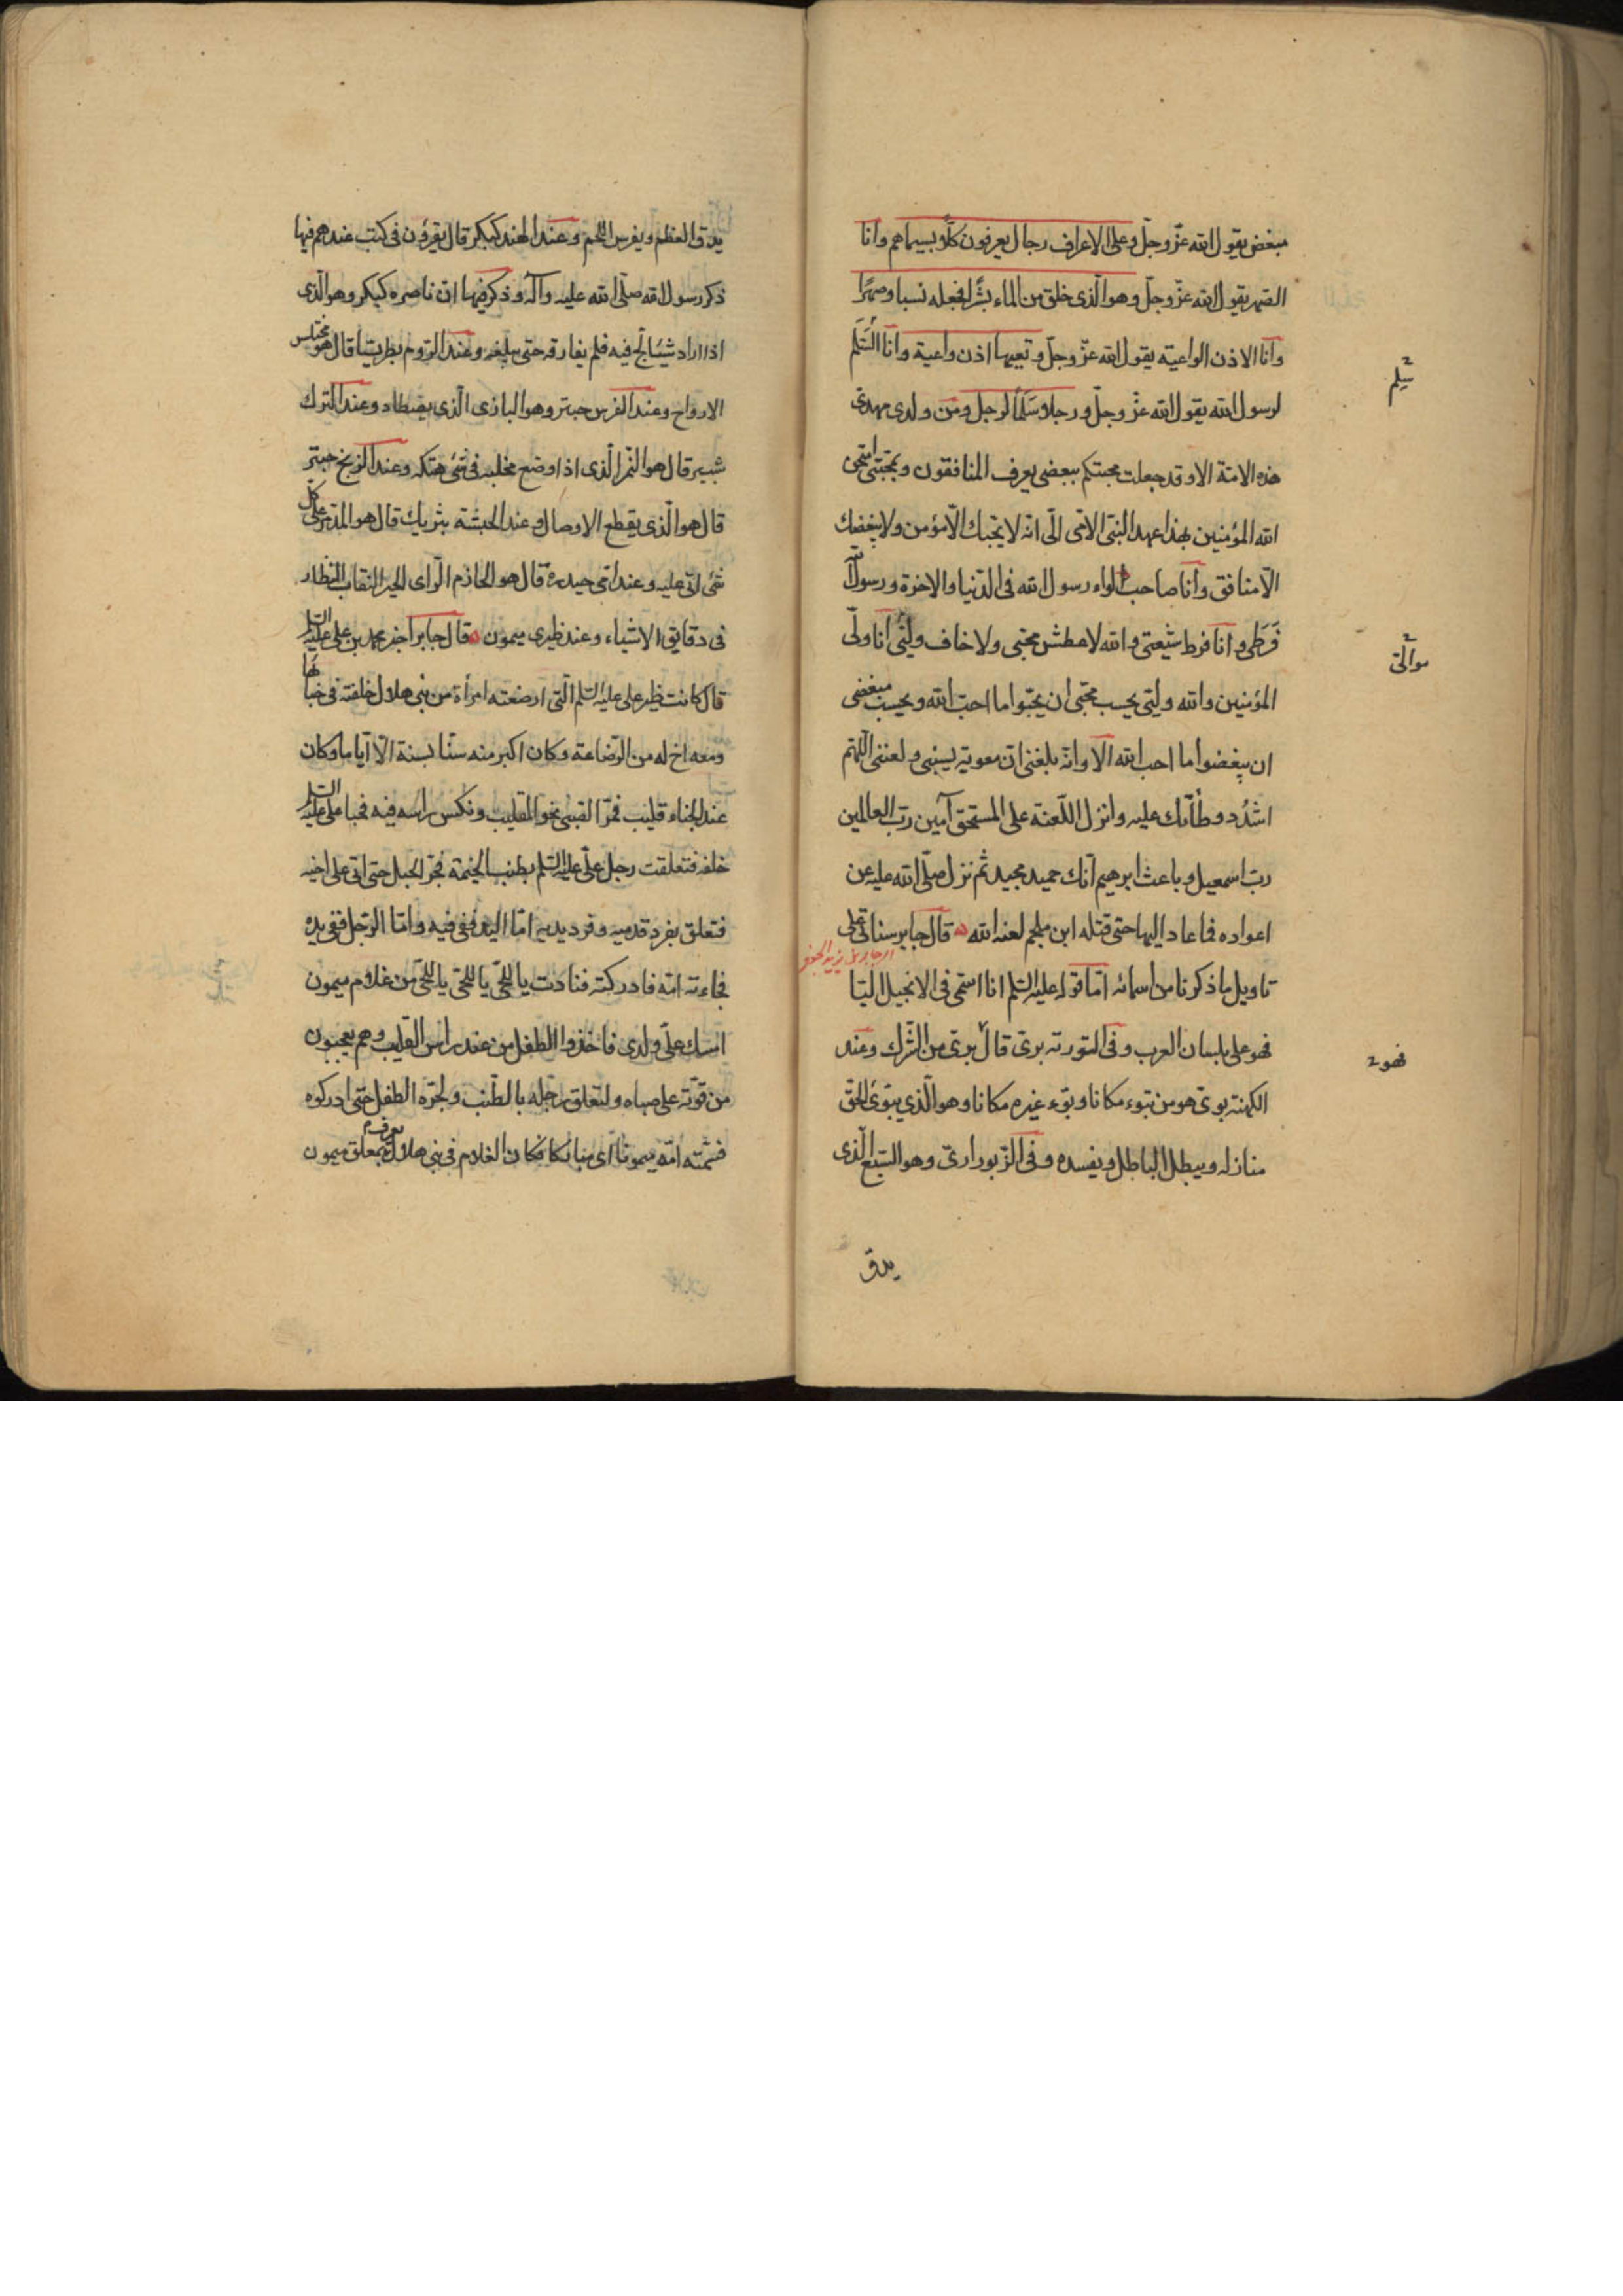 مبغض يقول الله عزّ وجلّ وعلى الاعراف رجال يعرفون كلّا بسيماهم وانا
الصهر يقول الله عزّ وجلّ وهو الّذى خلق من الماء بشرًا فجعله نسبا وصهرًا
وانا الاذن الواعية يقول الله عزّ وجلّ وتعيها اذن واعية وانا السَّلَم
لرسول الله يقول الله عزّ وجلّ ورجلا سَلَمًا لرجل ومن ولدى مهدىّ
هذه الامّة الا وقد جعلت محبتكم ببغضى يعرف المنافقون وبمحبّتى امتحن
الله المؤمنين بهذا عهد النبىّ الامّى الىّ انّه لا يحبّك الّا مؤمن ولا يبغضك
الّا منافق وانا صاحب لواء رسول الله فى الدّنيا والاخرة ورسول الله
فَرَطى وانا فرط شيعتى والله لا عطش محبّى ولا خاف وليّى انا ولىّ
المؤمنين والله وليّى يحسب محبّى ان يحبّوا ما احبّ الله ويحسب مبغضى
ان يبغضوا ما احبّ الله الا وانّه بلغنى انّ معوية يسبنى ولعننى اللّهمّ
اشدُد وطأتك عليه وانزل اللّعنة على المستحقّ آمين ربّ العالمين
ربّ اسمعيل وباعث ابرهيم انّك حميد مجيد ثمّ نزل صلّى الله عليه عن
اعواده فما عاد اليها حتى قتله ابن ملجم لعنه الله قال جابر سناتى على
تاويل ما ذكرنا من اسمائه امّا قوله عليه السّلم انا اسمى فى الانجيل اليّا
فهو علىّ بلسان العرب وفى التورته برىّ قال برىّ من الشّرك وعند
الكهنة بوىّ هو من تبوّء مكانا وبوّء غيره مكانا وهو الّذي يبوّئ الحقّ
منازله ويبطل الباطل ويفسده وفى الزّبور ارىّ وهو السّبع الّذى
يدق
سلم
فهو
يدقّ العظم ويفرس اللّحم وعند الهند كبكر قال يقرؤن فى كتب عندهم فيها
ذكر رسول الله صلّى الله عليه وآله وذكر فيها انّ ناصره كبكر وهو الّذى
اذا اراد شيئا لجّ فيه فلم يفارقه حتى يبلغه وعند الرّوم بطريسا قال هو مختلس
الارواح وعند الفرس حبتر وهو البازى الّذى يصطاد وعند التّرك
شبير قال هو النّمر الّذى اذا وضع مخلبه فى شئ هتكه وعند الزّنج حبتر
قال هو الّذى يقطع الاوصال وعند الحبشة بثريك قال هو المدّمر على كلّ
شئ اتى عليه وعند امّى حيدرة قال هو الحازم الرّاى الخير النّقاب النّظار
فى دقايق الاشياء وعند ظيرى ميمون قال جابر اخبر محمد بن على عليه السّلم
قال كانت ظير على عليه السّلم الّتى ارضعته امرأة من بنى هلال خلفته فى خبائها
ومعه اخ له من الرّضاعة وكان اكبر منه سنّا بسنة الّا ايّاما وكان
عند الخباء قليب فمرّ الصّبىّ نحو القليب ونكس راسه فيه فحبا علىّ عليه السّلم
خلفه فتعلقت رجل علىّ عليه السّلم بطنب الخيمة فجرّ الحبل حتى اتى على اخيه
فتعلق بفرد قدميه وفرد يديه امّا اليد ففى فيه وامّا الرّجل ففى يده
فجاءته امّه فادركته فنادت ياللحىّ ياللحىّ ياللحىّ من غلام ميمون
امسك علىّ ولدى فاخذوا الطفل من عند راس القليب وهم يعجبون
من قوّته على صباه ولتعلق رجله بالطّنب ولجرّه الطفل حتى ادركوه
فسمّته امّه ميمونا اى مباركا فكان الغلام فى بنى هلال يعرف بمعلق ميمون